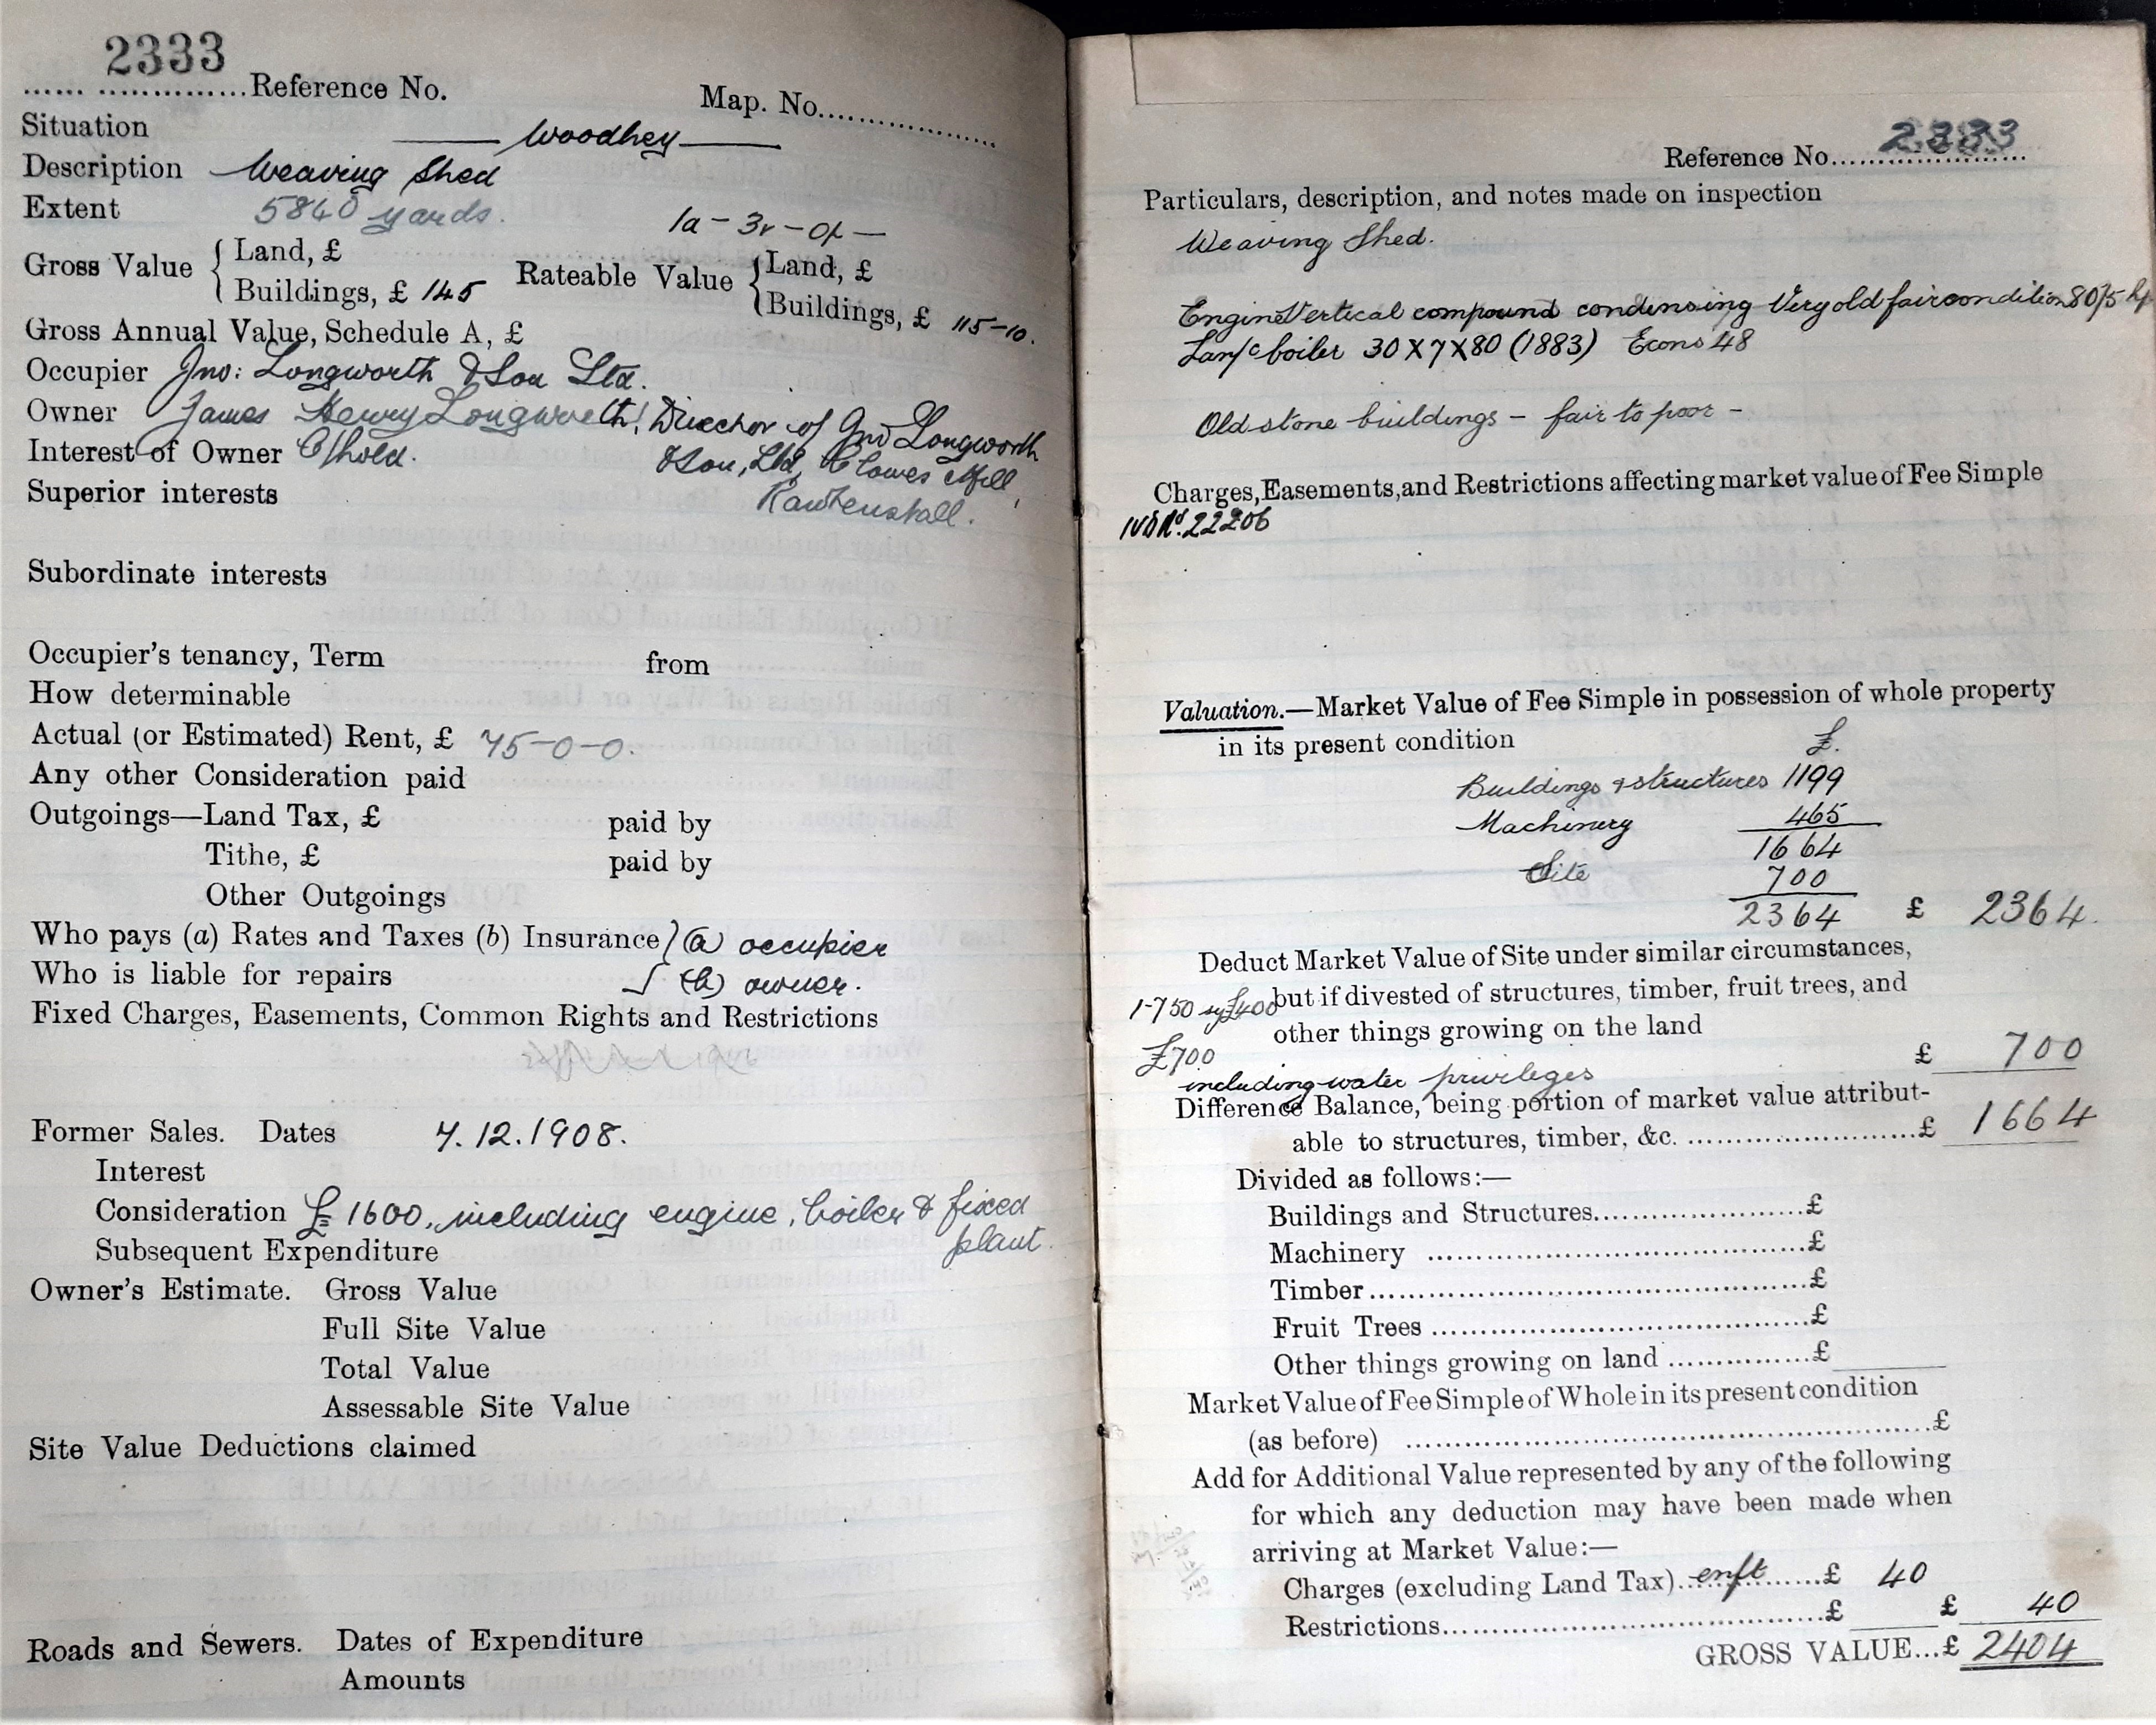 2333
Reference No.
Map. No.
Situation Woodhey
Description Weaving Shed
Extent 5840 yards. 1a - 3r - 0p -
Gross Value { Land, £ Rateable Value { Land, £
Buildings, £ 145 Buildings, £ 115-10.
Gross Annual Value, Schedule A, £
Occupier Jno: Longworth & Son Ltd.
Owner James Henry Longworth, Director of Jno Longworth
Interest of Owner C/hold. & Son, Ltd, Clowes Mill,
Superior interests Rawtenstall.
Subordinate interests
Occupier's tenancy, Term from
How determinable
Actual (or Estimated) Rent, £ 75-0-0.
Any other Consideration paid
Outgoings—Land Tax, £ paid by
Tithe, £ paid by
Other Outgoings
Who pays (a) Rates and Taxes (b) Insurance } (a) occupier
Who is liable for repairs (b) owner.
Fixed Charges, Easements, Common Rights and Restrictions
Former Sales. Dates 7.12.1908.
Interest
Consideration £1600, including engine, boiler & fixed
Subsequent Expenditure plant.
Owner's Estimate. Gross Value
Full Site Value
Total Value
Assessable Site Value
Site Value Deductions claimed
Roads and Sewers. Dates of Expenditure
Amounts
Reference No. 2333
Particulars, description, and notes made on inspection
Weaving Shed.
Engine Vertical compound condensing Very old fair condition 80/5 hp
Lan/c boiler 30 X 7 X 80 (1883) Econs 48
Old stone buildings - fair to poor -
Charges, Easements, and Restrictions affecting market value of Fee Simple
22206
Valuation.—Market Value of Fee Simple in possession of whole property
in its present condition £.
Buildings & structures 1199
Machinery 465
1664
Site 700
2364 £ 2364.
Deduct Market Value of Site under similar circumstances,
1-750 £400 but if divested of structures, timber, fruit trees, and
other things growing on the land
£700 £ 700
including water privileges
Difference Balance, being portion of market value attribut-
able to structures, timber, &c. £ 1664
Divided as follows:—
Buildings and Structures £
Machinery £
Timber £
Fruit Trees £
Other things growing on land £
Market Value of Fee Simple of Whole in its present condition
(as before) £
Add for Additional Value represented by any of the following
for which any deduction may have been made when
arriving at Market Value:—
Charges (excluding Land Tax) enft £ 40
Restrictions £ £ 40
GROSS VALUE...£ 2404